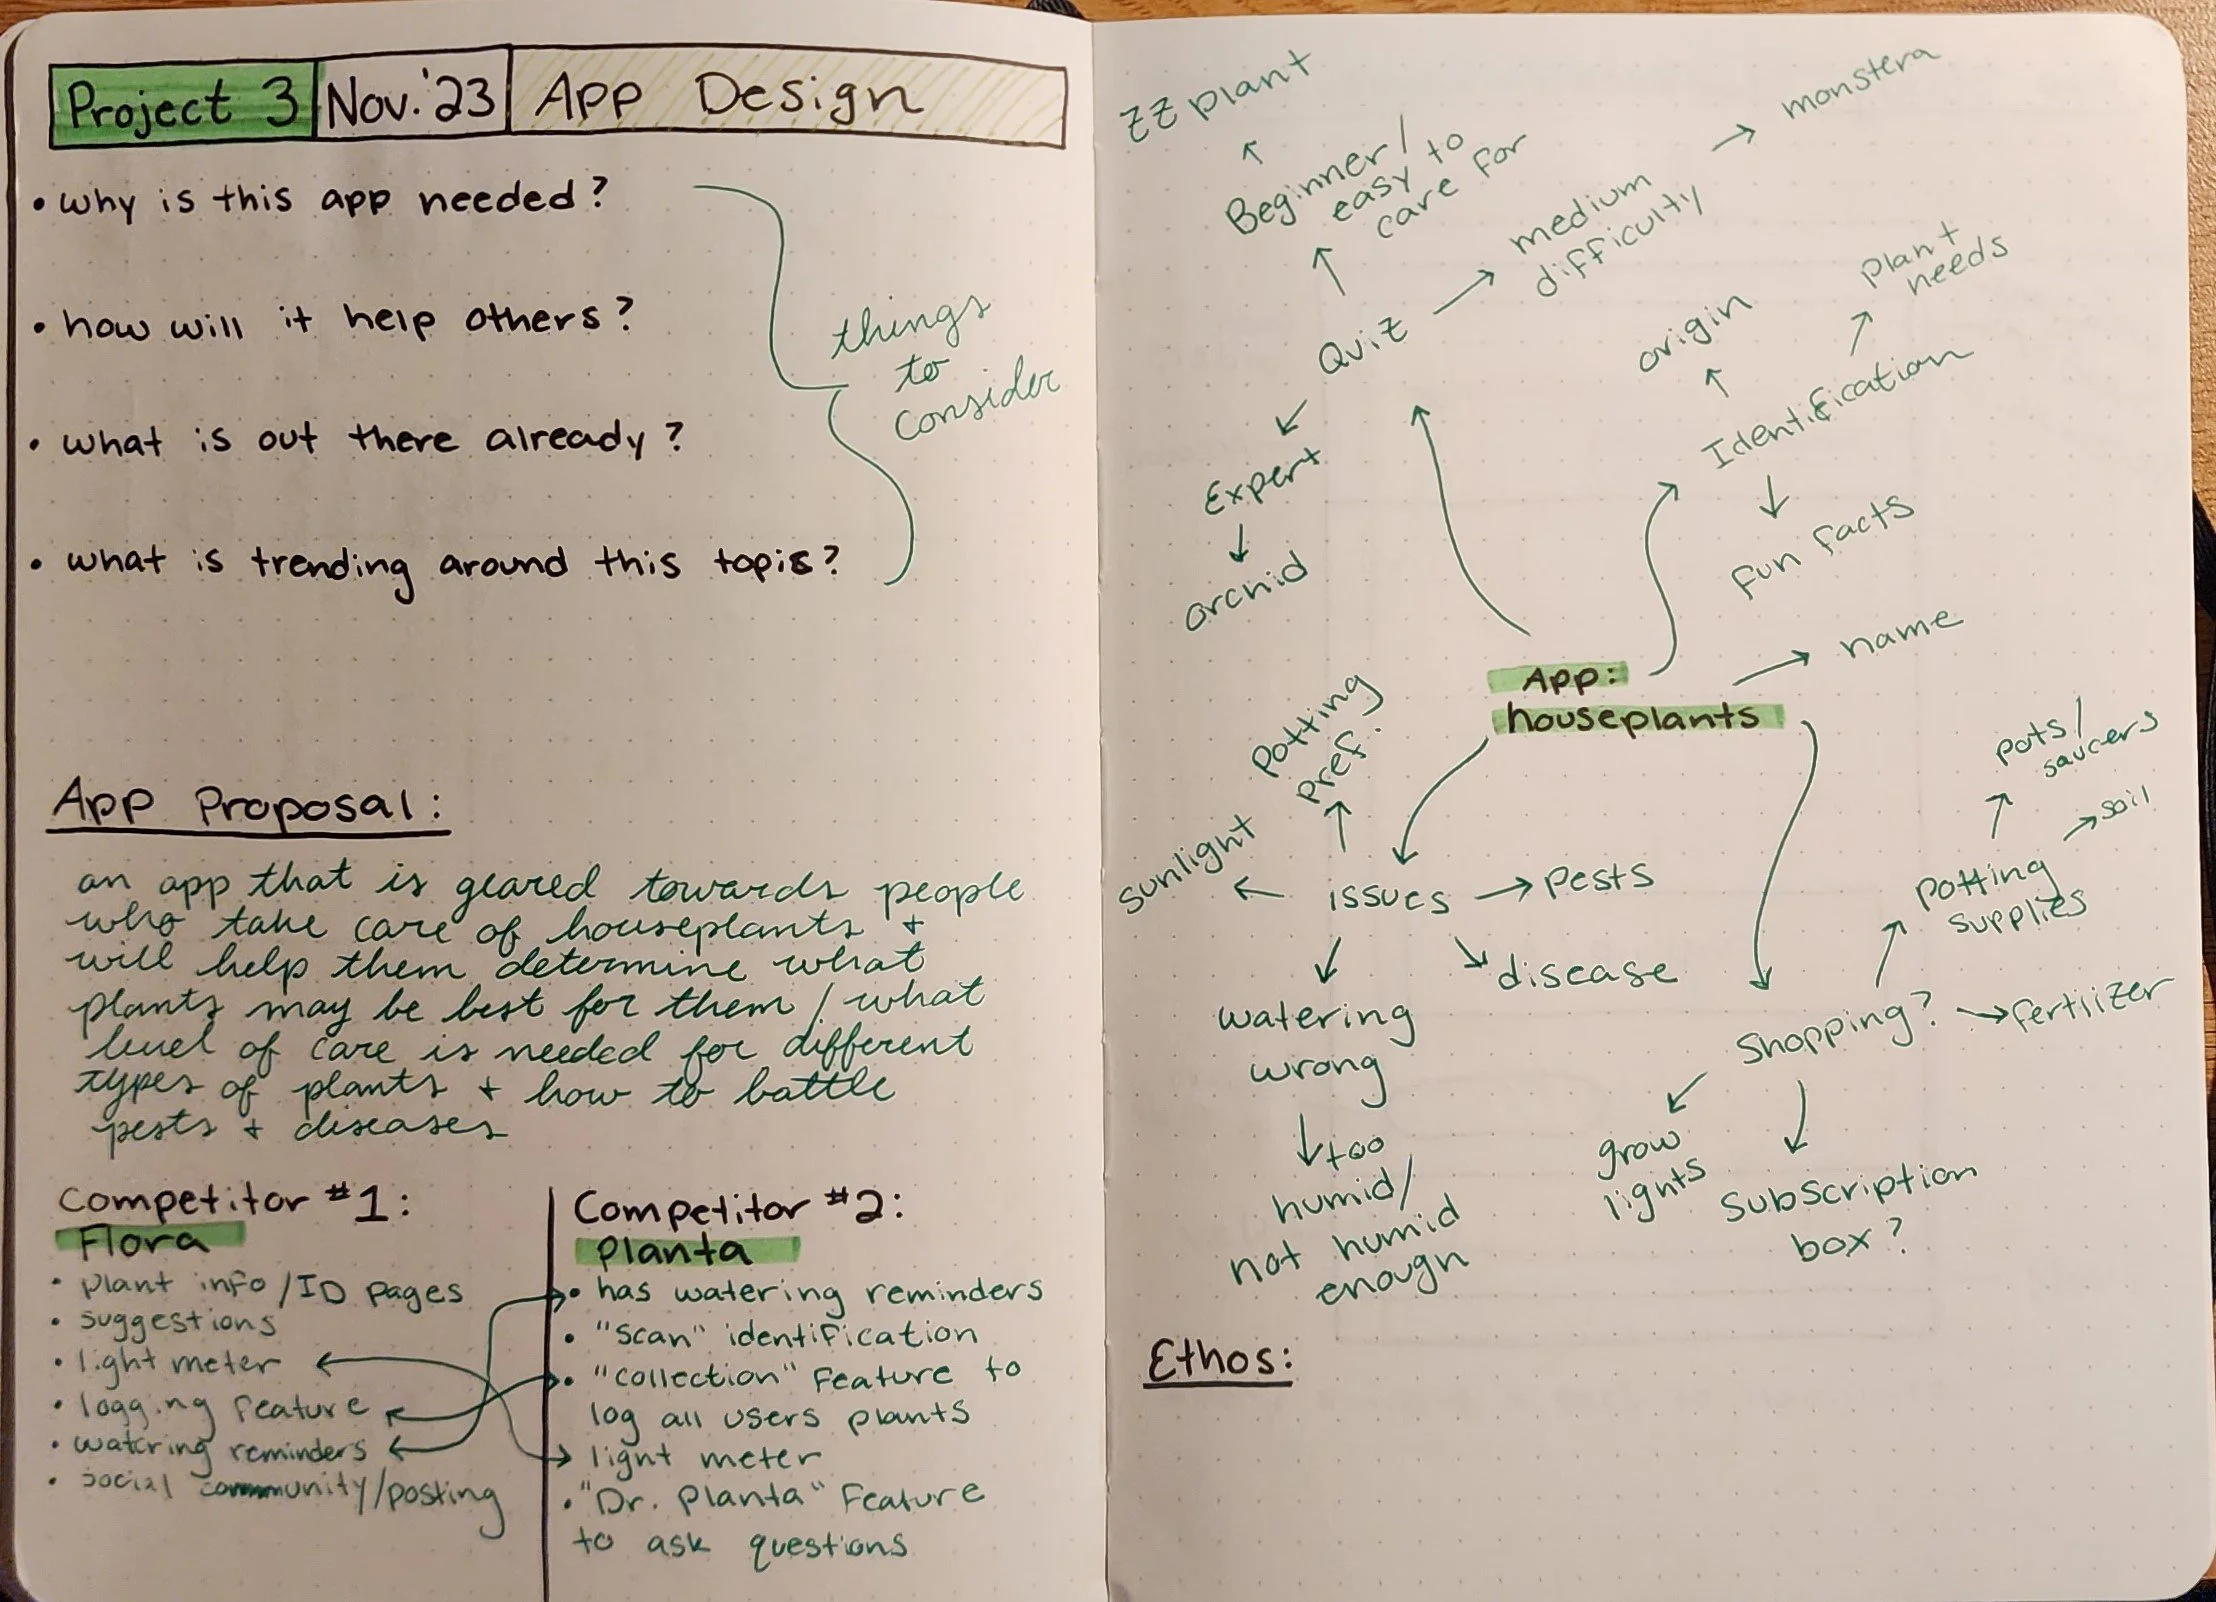 Project 3
Nov. '23
App Design
• why is this app needed?
• how will it help others?
• what is out there already?
• what is trending around this topis?
things
to
consider
App Proposal:
an app that is geared towards people
who take care of houseplants +
will help them determine what
plants may be best for them / what
level of care is needed for different
types of plants + how to battle
pests + diseases
Competitor #1:
Flora
• plant info/ID pages
• suggestions
• light meter
• logging feature
• watering reminders
• social community/posting
Competitor #2:
planta
• has watering reminders
• "scan" identification
• "collection" feature to
log all users plants
light meter
• "Dr. planta" feature
to ask questions
ZZ plant
Beginner/
easy to
care for
Quiz
medium
difficulty
monstera
Expert
orchid
Identification
origin
plant
needs
fun facts
App:
houseplants
name
issues
potting
pref.
sunlight
pests
disease
watering
wrong
too
humid/
not humid
enough
Shopping?
potting
supplies
pots/
saucers
soil
fertilizer
grow
lights
subscription
box?
Ethos: